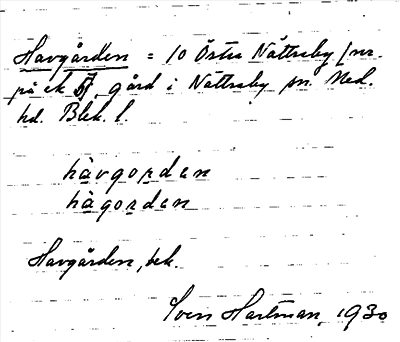 Havgården = 10 Östra Nättraby [nr.
på ek], gård i Nättraby sn. Med.
hd. Blek. l.
hàvgorden
hàgorden
Havgården, bek.
Sven Hartman, 1930